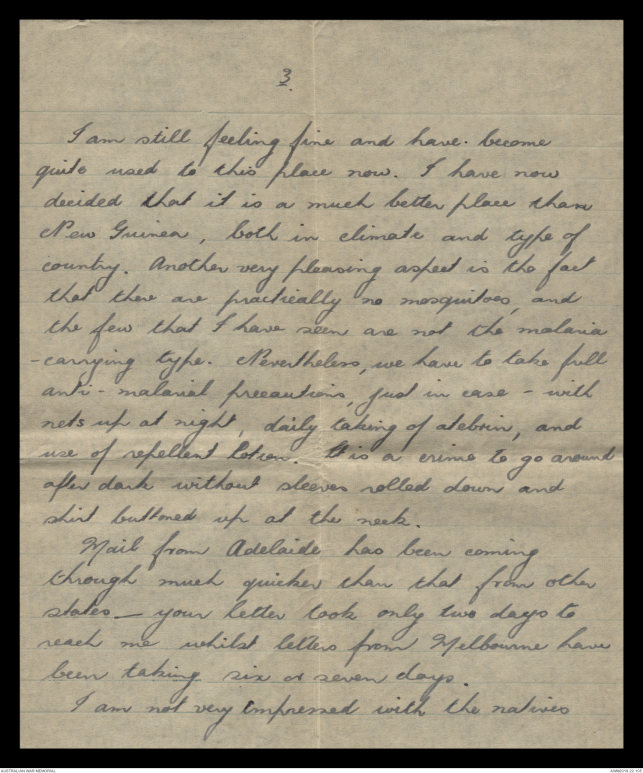 3.
I am still feeling fine and have become
quite used to this place now. I have now
decided that it is a much better place than
New Guinea, both in climate and type of
country. Another very pleasing aspect is the fact
that there are practically no mosquitoes, and
the few that I have seen are not the malaria
-carrying type. Nevertheless, we have to take full
anti-malarial precautions, just in case - with
nets up at night, daily taking of atebrin, and
use of repellent lotion. It is a crime to go around
after dark without sleeves rolled down and
shirt buttoned up at the neck.
Mail from Adelaide has been coming
through much quicker than that from other
states — your letter took only two days to
reach me whilst letters from Melbourne have
been taking six or seven days.
I am not very impressed with the natives
AUSTRALIAN WAR MEMORIAL